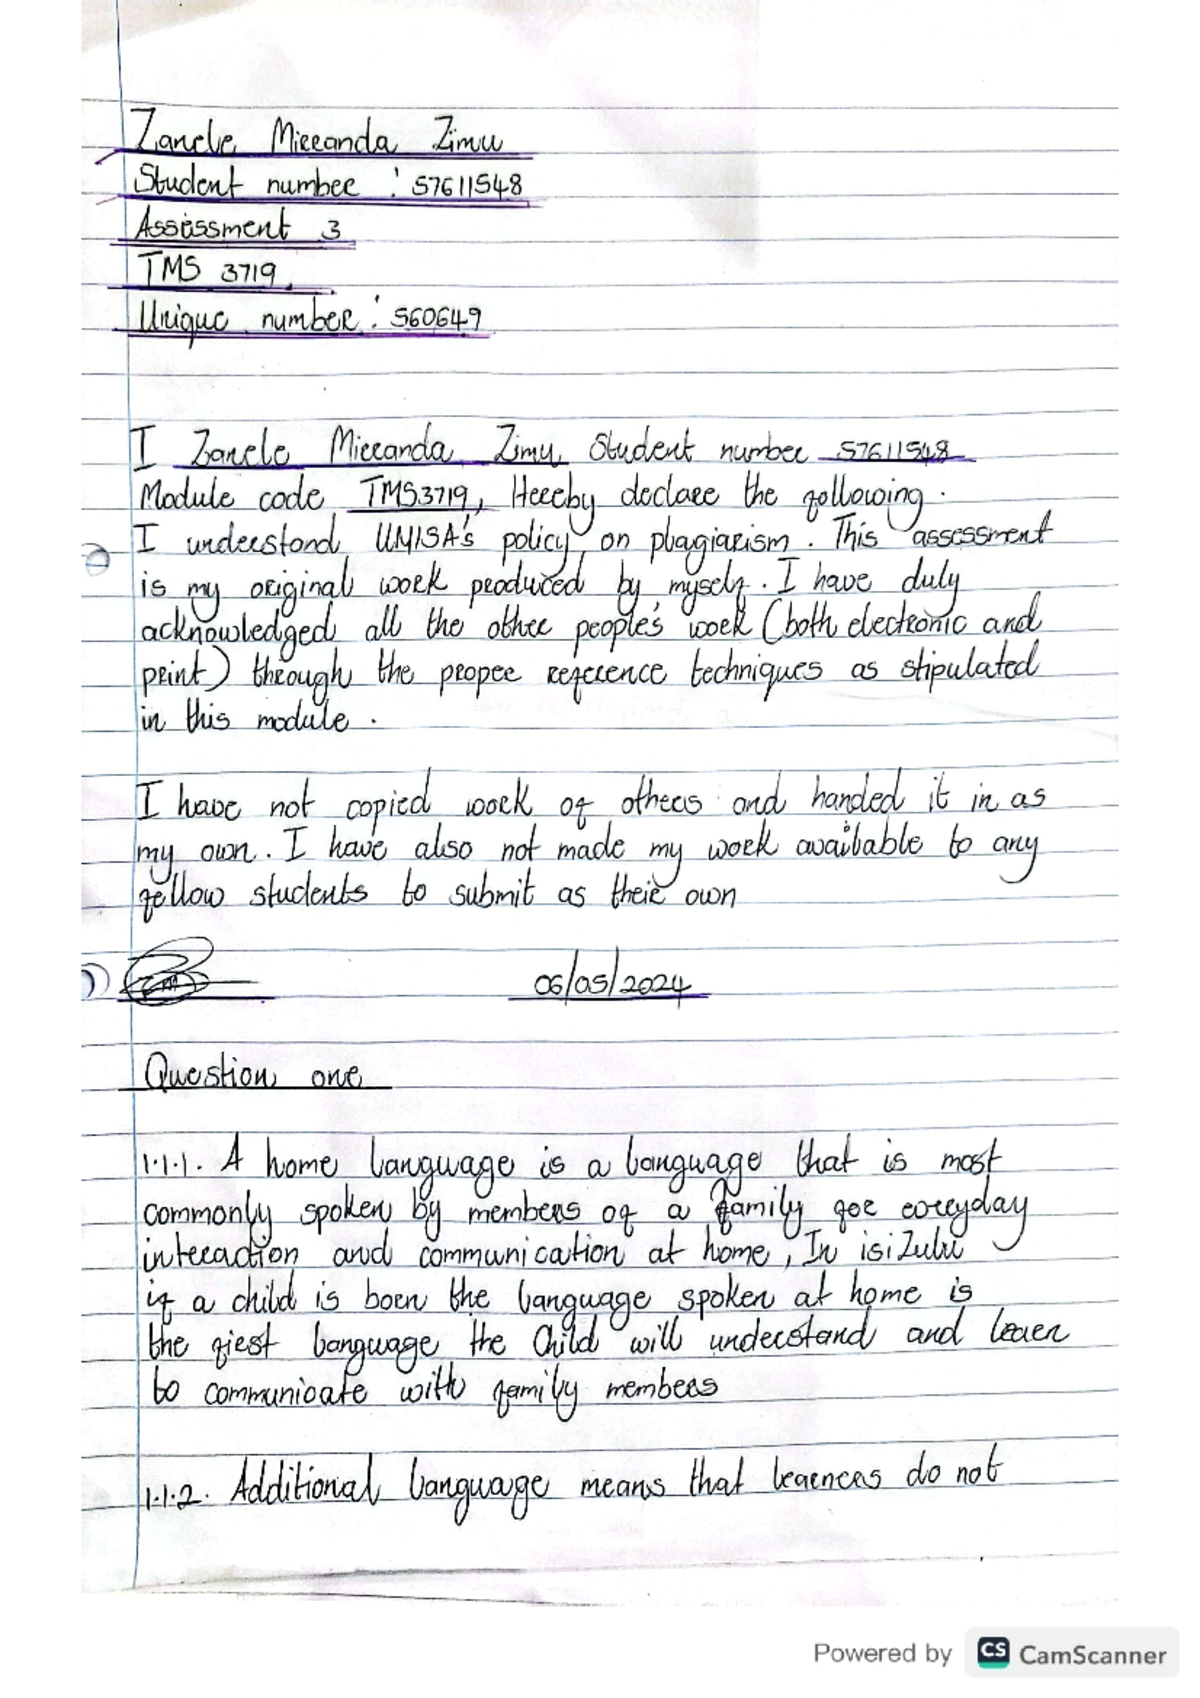 Zanele Mirranda Zimu
Student number : 57611548
Assessment 3
TMS 3719
Unique number : 560649
I Zanele Mirranda Zimu Student number 57611548
Module code TMS3719, Hereby declare the following.
I understand UNISA's policy on plagiarism. This assessment
is my original work produced by myself. I have duly
acknowledged all the other people's work (both electronic and
print) through the proper reference techniques as stipulated
in this module.
I have not copied work of others and handed it in as
my own. I have also not made my work available to any
fellow students to submit as their own
06/05/2024
Question one
1.1.1. A home language is a language that is most
commonly spoken by members of a family for everyday
interaction and communication at home, In isiZulu
if a child is born the language spoken at home is
the first language the Child will understand and learn
to communicate with family members
1.1.2. Additional language means that learners do not
Powered by CS CamScanner